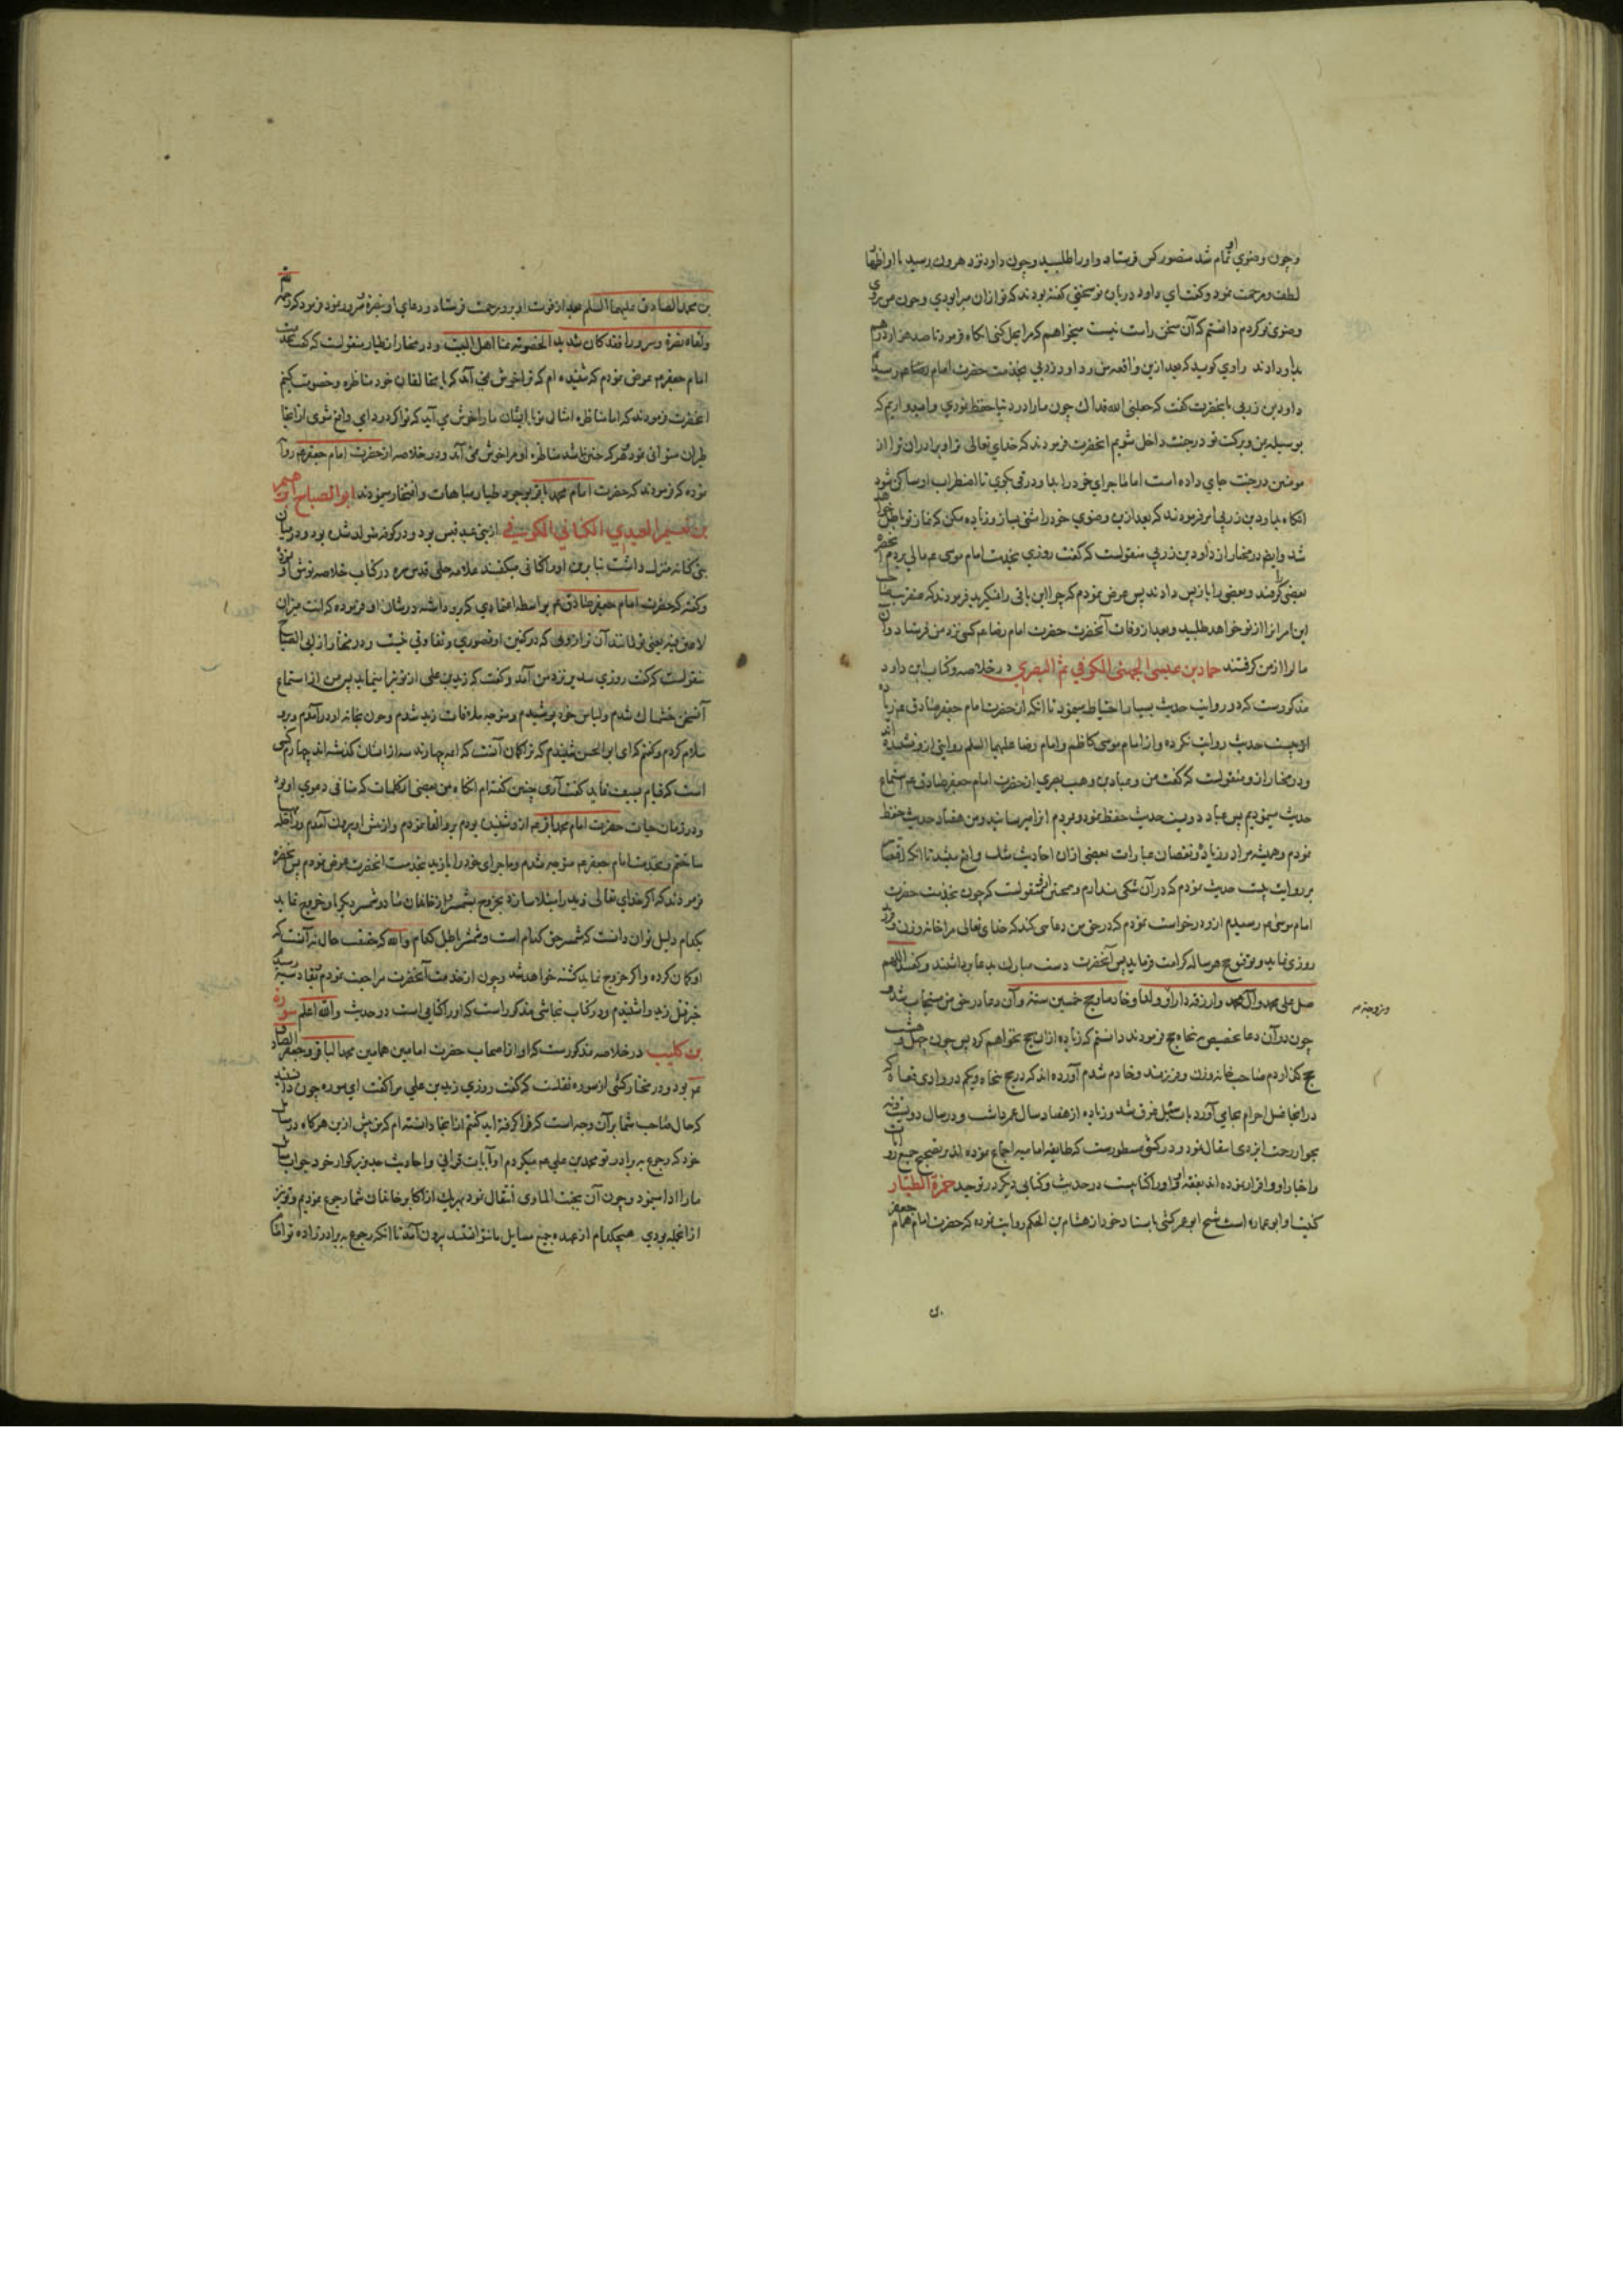 وچون وضوی او تمام شد منصور کس فرستاد و او را طلبید وچون داود نزد هرون رسید با او اظهار
لطف ومرحمت نمود وگفت ای داود در باب تو سخنی گفته بودند که تو از آن مبرا بودی وچون من بر
وضوی تو کردم دانستم که آن سخن راست نیست میخواهم که مرا بحل کنی انگاه فرمود تا صد هزار درهم
باو دادند راوی گوید که بعد ازین واقعه من و داود زربی بخدمت حضرت امام رسید
داود بن زربی بانحضرت گفت که جعلنی الله فداک چون ما را در دنیا حفظ نمودی وامیدواریم که
بوسیله یمن وبرکت تو در جنت داخل شویم انحضرت فرمودند که خدای تعالی ترا وبرادران ترا از
مومنین در جنت جای داده است اما ماجرای خود را با ودرقی بگوی تا اضطراب او ساکن شود
انگاه بداود بن زربی امر فرمودند که بعد ازین وضوی خود را مثنی بساز وزیاده مکن که نماز تو باطل خواهد
شد وایضا در مختار از داود بن زربی منقولست که گفت روزی بخدمت امام موسی ع مالی بردم انحضرت
بعضی را گرفتند وبعضی را باز پس دادند پس عرض نمودم که چرا این باقی را نمیگیرید فرمودند که صاحب
این امر انرا از تو خواهد طلبید وبعد از وفات آنحضرت حضرت امام رضا ع کسی نزد من فرستاد وآن
مال را از من گرفتند حماد بن عیسی الجهنی الکوفی ثم البصری در خلاصه وکتاب ابن داود
مذکورست که در روایت حدیث بسیار احتیاط مینمود تا انکه از حضرت امام جعفر صادق ع زیاده
از بیست حدیث روایت نکرده واز امام موسی کاظم وامام رضا علیهما السلم روایتی ازو نشنیده اند
ودر مختار ازو منقولست که گفت من وعباد بن وهب بصری از حضرت امام جعفر صادق ع استماع
حدیث مینمودیم پس عباد دویست حدیث حفظ نمود وبردم از او میرسانید ومن هفتاد حدیث حفظ
نمودم وهمیشه مرا در زیاده ونقصان عبارات بعضی ازان احادیث شک واقع میشد تا انکه اقتصار
بر روایت بیست حدیث نمودم که در آن شکی ندارم وهم ازو منقولست که چون بخدمت حضرت
امام موسی ع رسیدم ازو درخواست نمودم که در حق من دعا کند که خدای تعالی مرا خانه وزن وفرزند
روزی نماید وتوفیق حج هر ساله کرامت فرماید پس آنحضرت دست مبارک بدعا برداشتند وگفتند اللهم
صل علی محمد وآل محمد وارزقه دارا وولدا وخادما وحج خمسین سنة وآن دعا در حق من مستجاب شد و
وزوجته
چون در آن دعا تخصیص پنجاه حج فرمودند دانستم که زیاده ازان حج نخواهم کرد پس چون چهل وهشت
حج گذاردم صاحب خانه وزن وفرزند وخادم شدم آورده اند که در حج پنجاه ویکم در وادی قناة که
در انجا غسل احرام بجای آورد بآب سیل غرق شد وزیاده از هفتاد سال عمر داشت ودر سال دویست ونه
بجوار رحمت ایزدی انتقال نمود ودر کشی مسطورست که طایفه امامیه اجماع نموده اند بر تصحیح جمیع روایات
واخبار او واقرار نموده اند بفقه او واو را کتابیست در حدیث وکتابی دیگر در توحید حمزة الطیار
کنیت او ابو عماره است شیخ ابو عمر کشی باسناد خود از هشام بن الحکم روایت نموده که حضرت امام همام جعفر
بن محمد الصادق علیهما السلم بعد از فوت او برو رحمت فرستاد ودعای او بنضرة وسرور نمود وفرمود که رحمه الله
ولقاه نضرة وسرورا فقد کان شدید الخصومة عنا اهل البیت ودر مختار از طیار منقولست که گفت بخدمت
امام جعفر ع عرض نمودم که شنیده ام که ترا خوش نمی آید که با مخالفان خود مناظره وخصومت کنیم
انحضرت فرمودند که اما مناظره امثال تو با ایشان ما را خوش می آید که ترا گر در دای واقع شوی از انجا
طیران میتوانی نمود وهر که چنین باشد مناظره او مرا خوش می آید ودر خلاصه از حضرت امام جعفر ع روایت
نموده که فرمودند که حضرت امام محمد باقر بوجود طیار مباهات وافتخار مینمودند ابو الصباح ابراهیم
بن نعیم العبدی الکنانی الکوفی از بنی عبد قیس بود ودر کوفه متولد شده بود ودر میان
بنی کنانه منزل داشت بنابرین او را کنانی میگفتند علامه حلی قدس سره در کتاب خلاصه توثیق او نموده
وگفته که حضرت امام جعفر صادق ع بواسطه اعتمادی که برو داشته در شان او فرموده که انت میزان
لا عین فیه یعنی تو مانند آن ترازویی که در کفتین او قصوری وتفاوتی نیست ودر مختار از ابی الصباح
منقولست که گفت روزی سدیر نزد من آمد وگفت که زید بن علی از تو تبرا مینماید پس من از استماع
آنسخن خشمناک شدم ولباس خود پوشیدم ومتوجه ملاقات زید شدم وچون بخانه او درآمدم وبرو
سلام کردم وگفتم که ای ابو الحسین شنیدم که ترا گمان آنست که ائمه چهارند سه از ایشان گذشته اند وچهارم کسی
است که قیام بسیف نماید گفت آری چنین گفته ام انگاه من بعضی از کلمات که منافی دعوی او بود
ودر زمان حیات حضرت امام محمد باقر ع ازو شنیده بودم برو القا نمودم واز پیش او بیرون آمدم وراحله مهیا
ساختم وبخدمت امام جعفر ع متوجه شدم وماجرای خود را با زید بخدمت انحضرت عرض نمودم پس آنحضرت
فرمودند که اگر خدای تعالی زید را مبتلا سازد بخروج بشمشیر از مخالفان ما دو شمشیر دیگر با او خروج نماید
بکدام دلیل توان دانست که شمشیر حق کدام است وشمشیر باطل کدام والله که حقیقت حال نه آنست که
او گمان کرده واگر خروج نماید کشته خواهد شد وچون از خدمت آنحضرت مراجعت نمودم بقادسیه رسیدم
خبر قتل زید را شنیدم ودر کتاب نجاشی مذکور است که او را کتابی است در حدیث والله اعلم سوره
بن کلیب در خلاصه مذکورست که او از اصحاب حضرت امامین همامین محمد الباقر وجعفر الصادق
ع بود ودر مختار کشی از سوره نقلست که گفت روزی زید بن علی مرا گفت ای سوره چون دانستید
که حال صاحب شما بر آن وجه است که فرا گرفته اید گفتم از انجا دانسته ام که من پیش ازین هرگاه در مسایل
خود که رجوع به برادر تو محمد بن علی ع میکردم او آیات قرآنی واحادیث جد بزرگوار خود جواب مسایل
ما را ادا مینمود وچون آن بجنت الماوی انتقال نمود بهریک از اکابر خاندان شما رجوع نمودیم وتو نیز
از انجمله بودی هیچکدام از عهده جمیع مسایل ما نتوانستند بیرون آمد تا انکه رجوع به برادرزاده تو امام